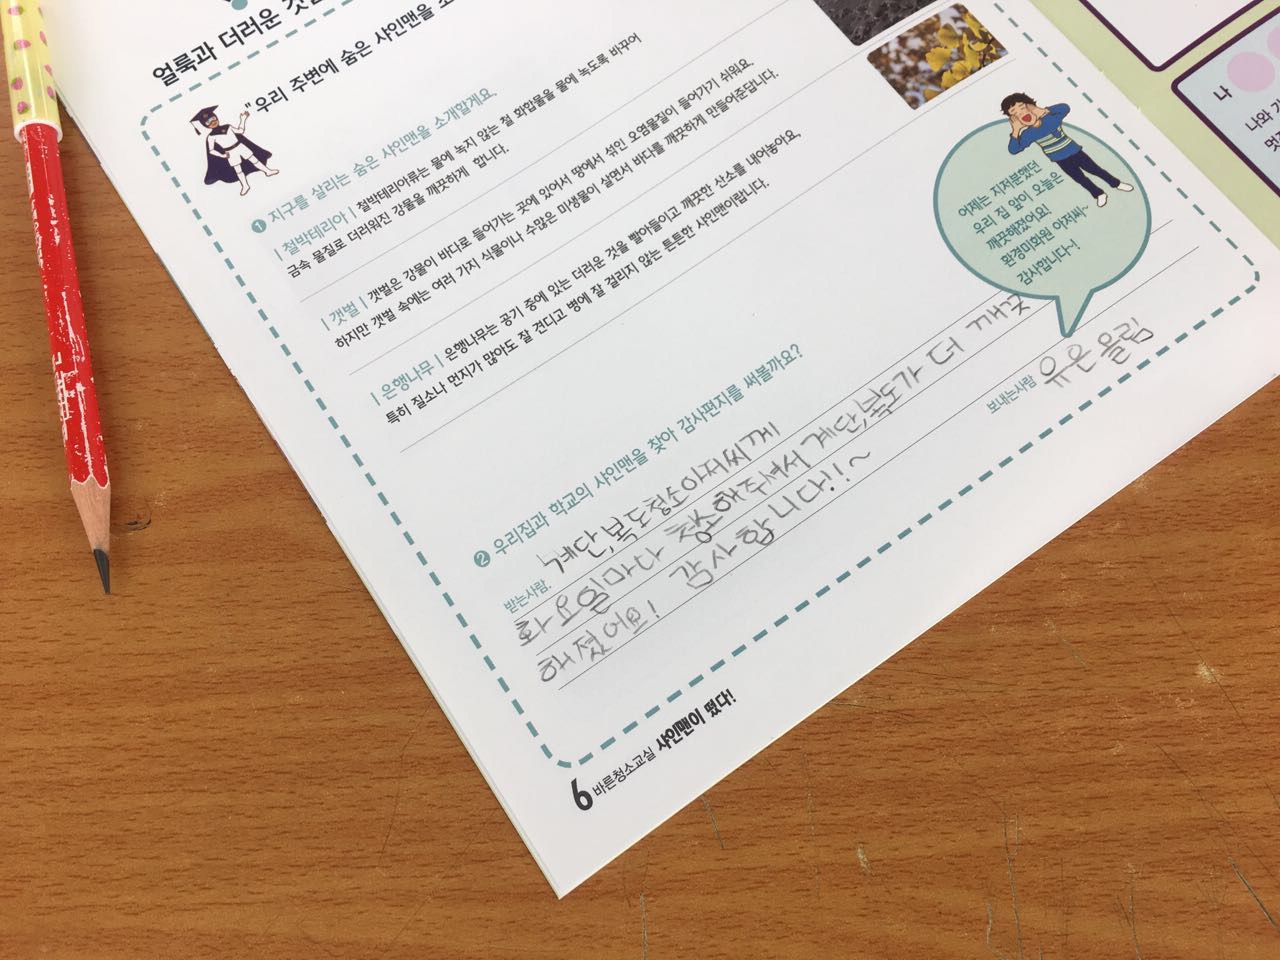 얼룩과 더러운
"우리 주변에 숨은 샤인맨을
❶ 지구를 살리는 숨은 샤인맨을 소개할게요.
| 철박테리아 | 철박테리아류는 물에 녹지 않는 철 화합물을 물에 녹도록 바꾸어
금속 물질로 더러워진 강물을 깨끗하게 합니다.
| 갯벌 | 갯벌은 강물이 바다로 들어가는 곳에 있어서 땅에서 섞인 오염물질이 들어가기 쉬워요.
하지만 갯벌 속에는 여러 가지 식물이나 수많은 미생물이 살면서 바다를 깨끗하게 만들어준답니다.
| 은행나무 | 은행나무는 공기 중에 있는 더러운 것을 빨아들이고 깨끗한 산소를 내어놓아요.
특히 질소나 먼지가 많아도 잘 견디고 병에 잘 걸리지 않는 튼튼한 샤인맨이랍니다.
어제는 지저분했던
우리 집 앞이 오늘은
깨끗해졌어요!
환경미화원 아저씨~
감사합니다~!
❷ 우리집과 학교의 샤인맨을 찾아 감사편지를 써볼까요?
받는사람. 계단,복도청소아저씨께
화요일마다 청소해주셔서 계단,복도가 더 깨끗
해졌어요! 감사합니다!!~
보내는사람 유은올림
6 바른청소교실 샤인맨이 떴다!
나